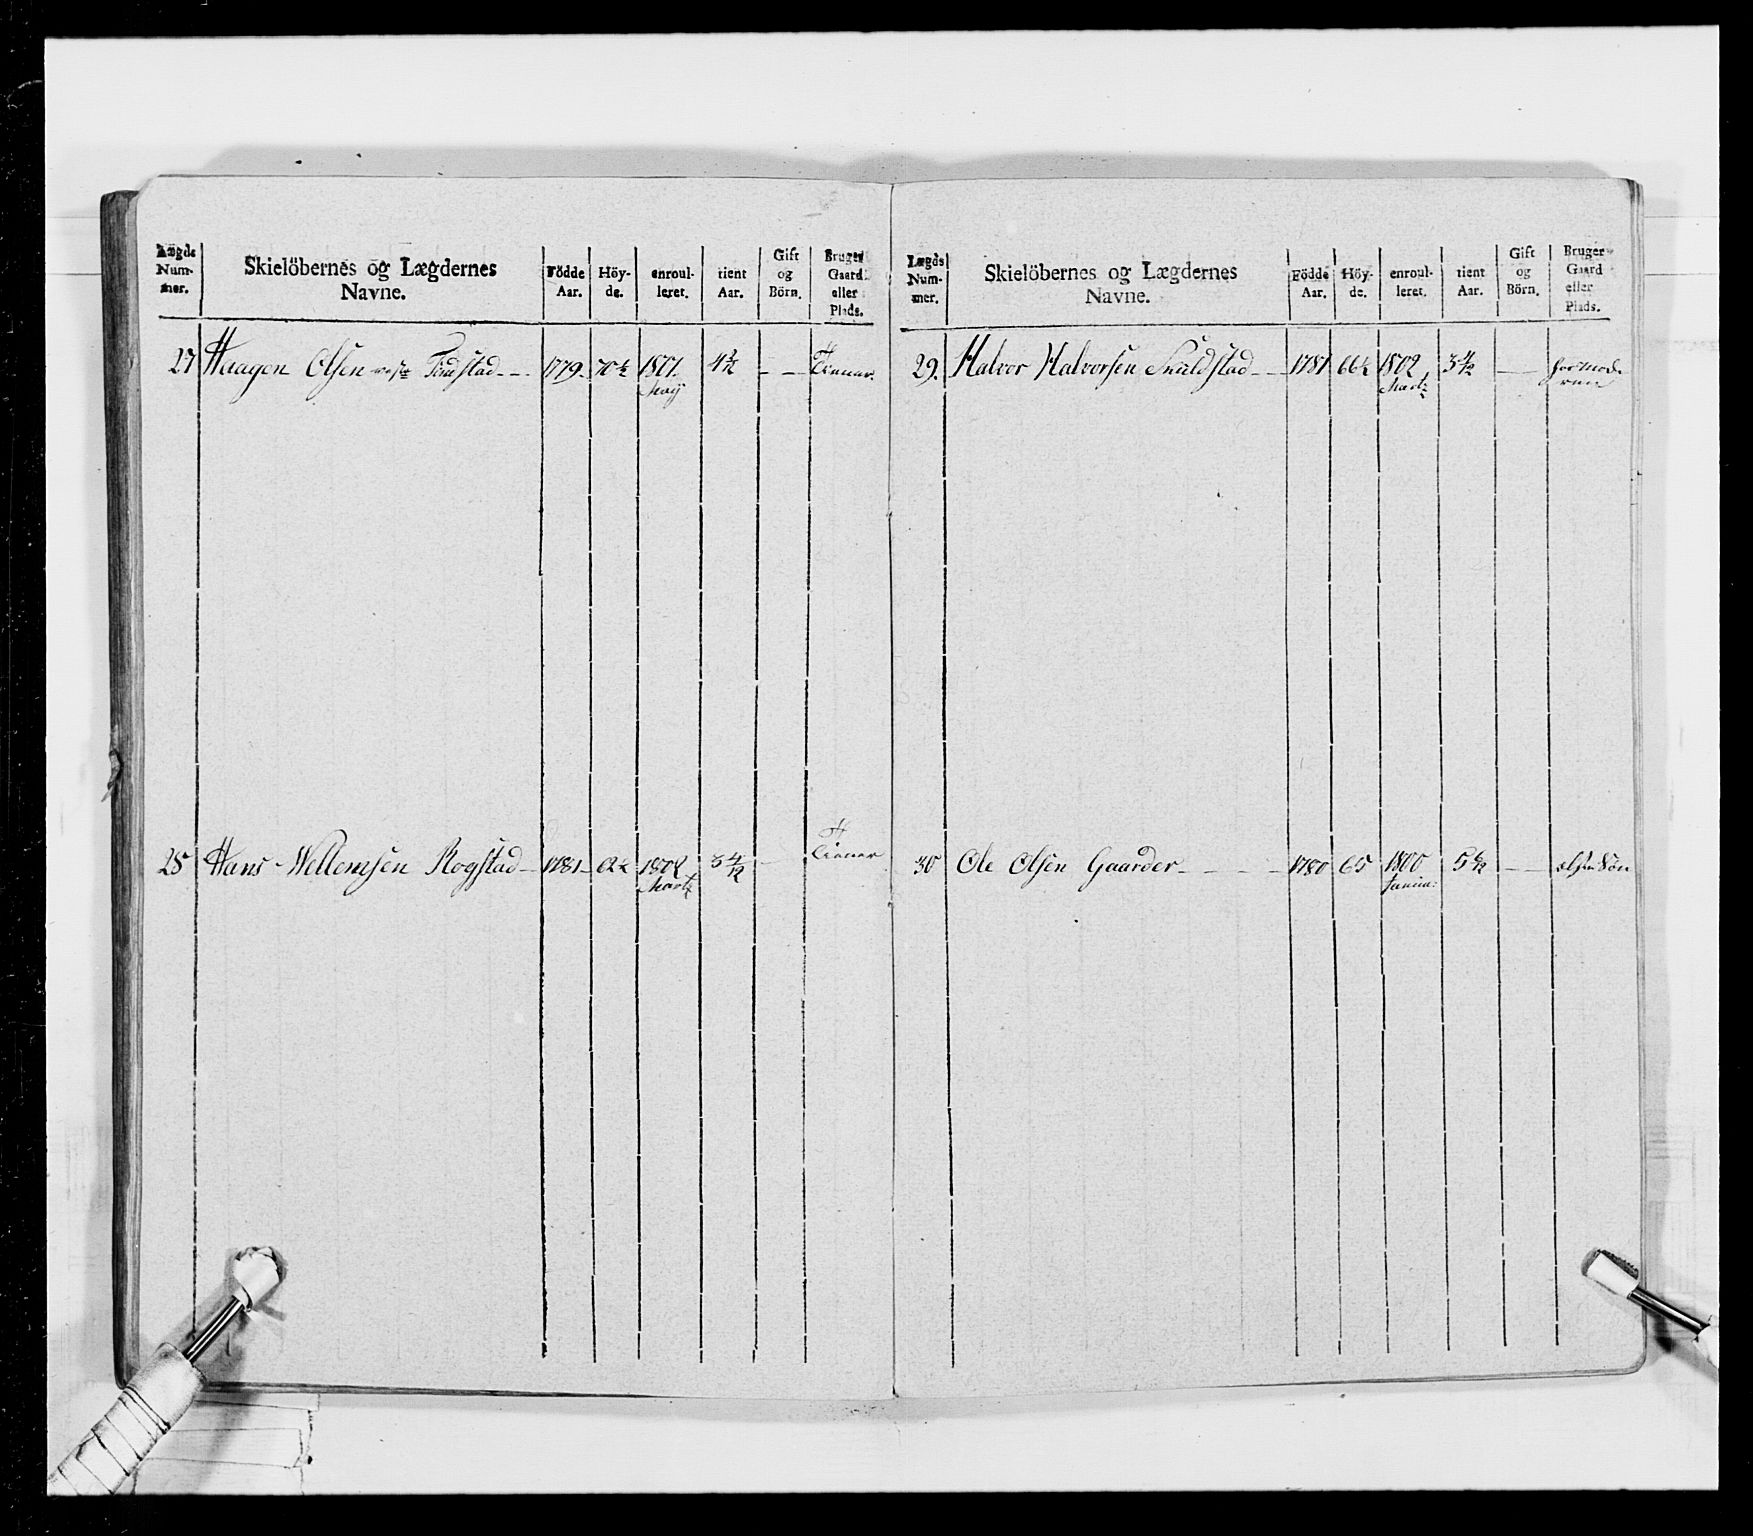 Lægds Num- mer. Skielöbernes og Lægdernes Navne. Födde Aar. Höy- de. enroul- leret. tient Aar. Gift og Börn. Bruger Gaard eller Plads.
27 Haagen Olsen Tødstad - - 1779. 70½ 1801. - - Tienner.
Maÿ
28 Hans Wellemsen Rogstad - 1781 - 1802 3 4/12 - Tienner
Martz
Lægds Num- mer. Skielöbernes og Lægdernes Navne. Födde Aar. Höy- de. enroul- leret. tient Aar. Gift og Börn. Bruger Gaard eller Plads.
29. Halvor Halvorsen Skuldstad - - 1781 66½ 1802 3 4/12 - -
Martz
30 Ole Olsen Gaarder - - - - 1780 65 1800 5 6/12 - -
Janua: